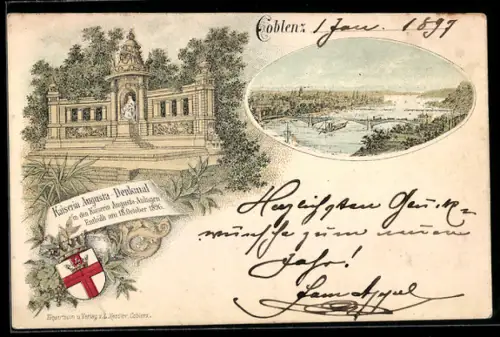 Coblenz 1 Jan. 1897
Kaiserin Augusta Denkmal
in den Kaiserin Augusta-Anlagen
Enthüllt am 18. October 1896.
Herzlichsten Glück-
wünsche zum neuen
Jahr!
Eigenthum u. Verlag v. L. Kessler, Coblenz.